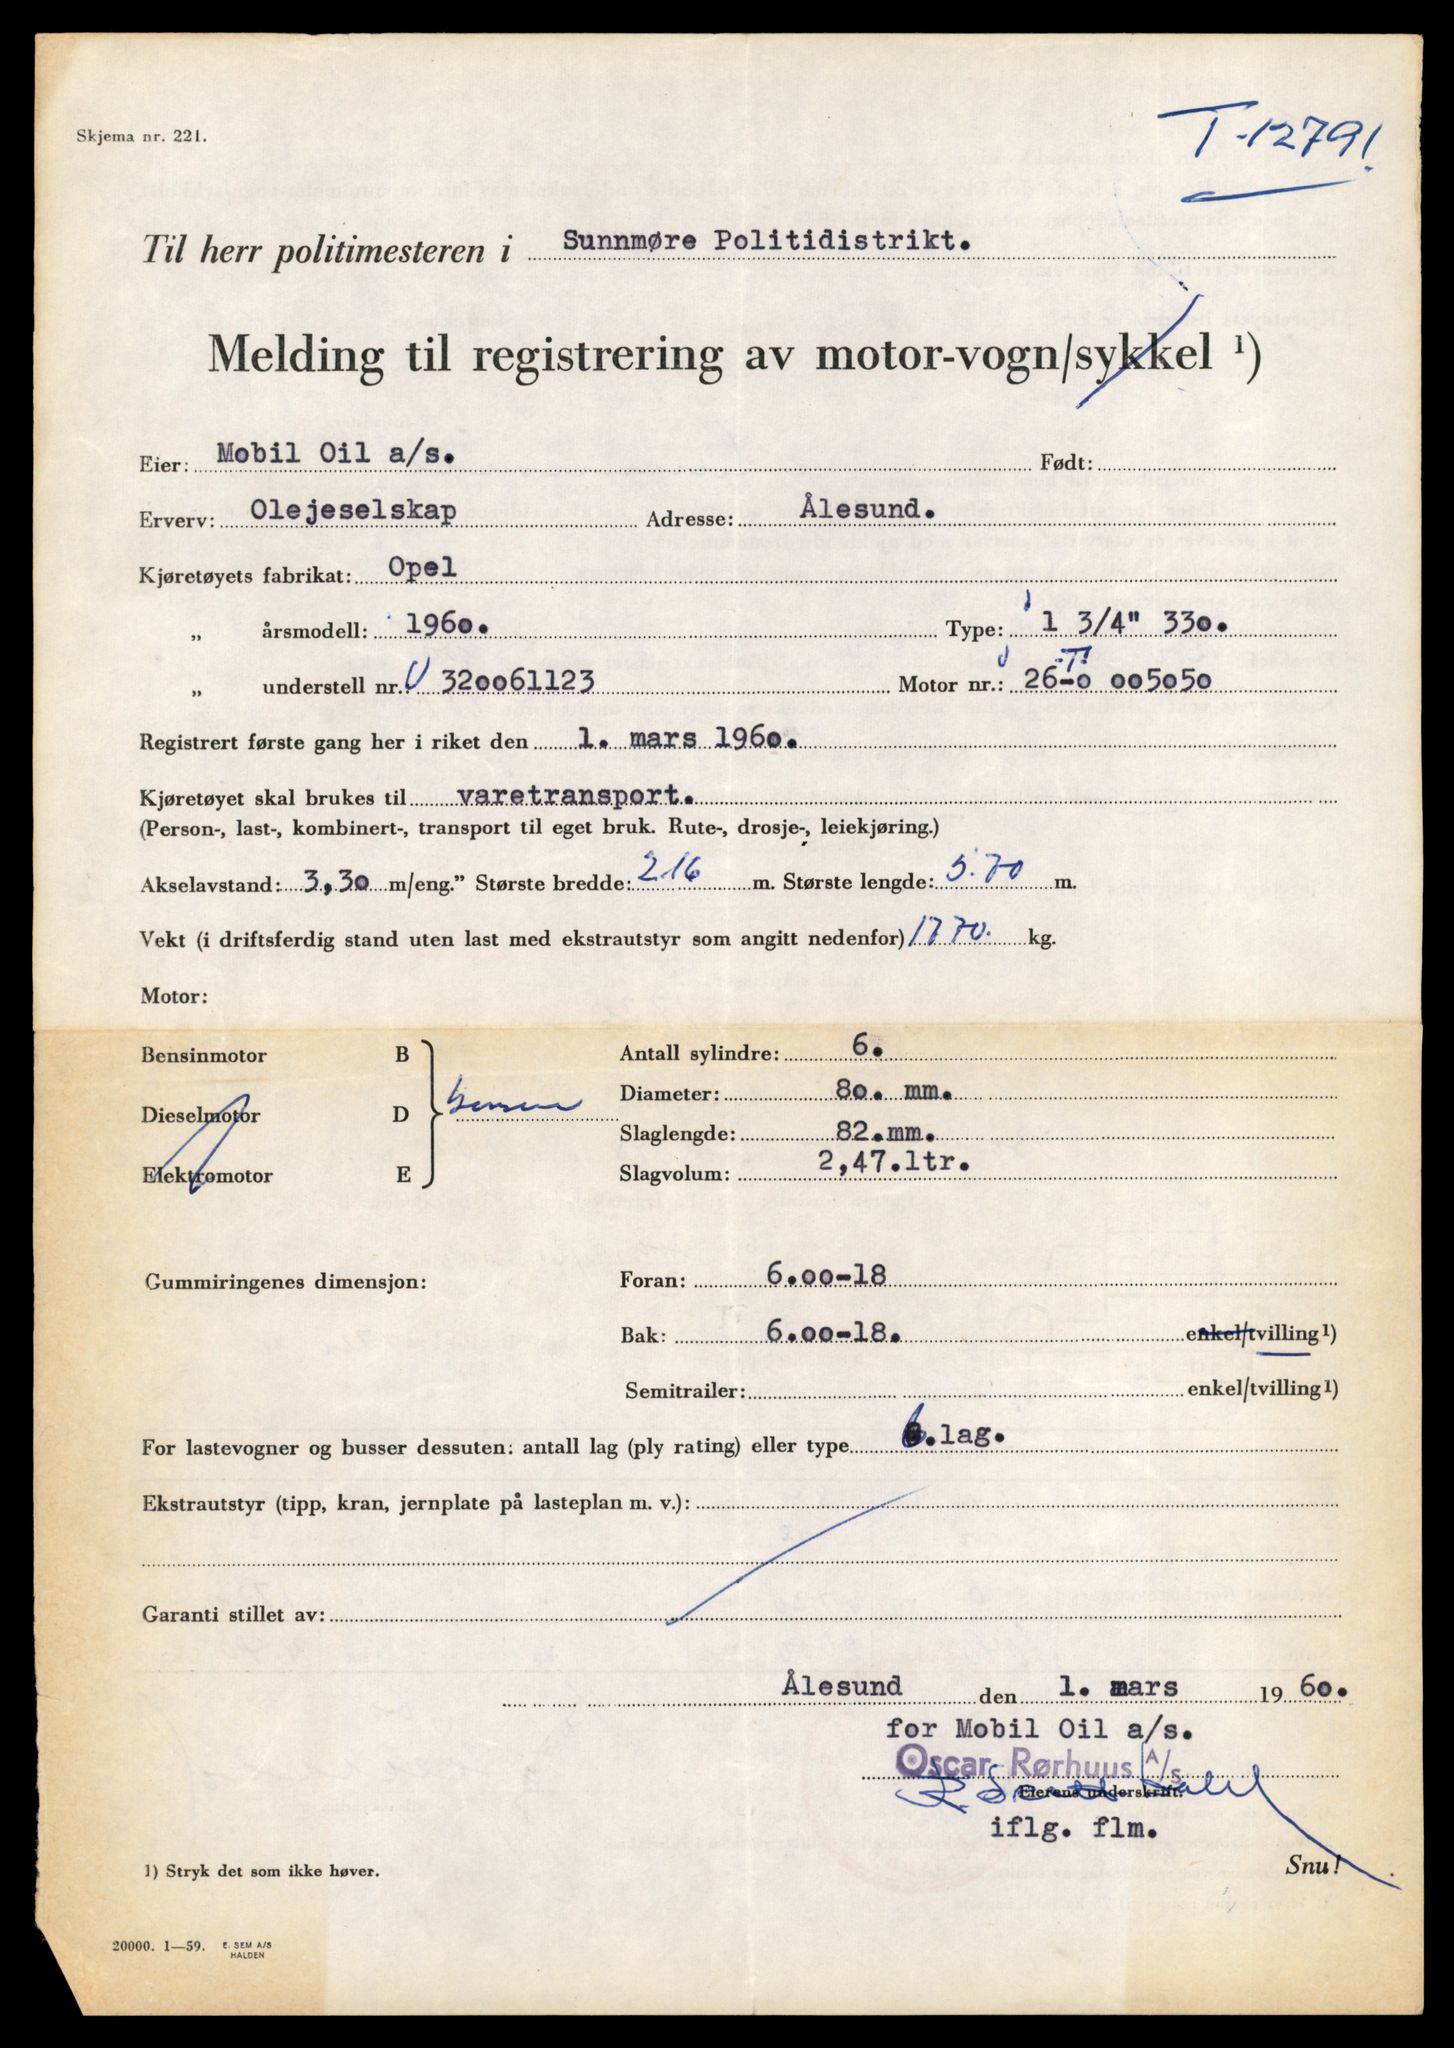 T-12791
Skjema nr. 221.
Til herr politimesteren i Sunnmøre Politidistrikt.
Melding til registrering av motor-vogn/sykkel 1)
Eier: Mobil Oil a/s. Født:
Erverv: Olejeselskap Adresse: Ålesund.
Kjøretøyets fabrikat: Opel
„ årsmodell: 1960. Type: 1 3/4" 330.
„ understell nr.: 320061123 Motor nr.: 26-0 005050
Registrert første gang her i riket den 1. mars 1960.
Kjøretøyet skal brukes til varetransport.
(Person-, last-, kombinert-, transport til eget bruk. Rute-, drosje-, leiekjøring.)
Akselavstand: 3,30 m/eng.” Største bredde: 2.16 m. Største lengde: 5.70 m.
Vekt (i driftsferdig stand uten last med ekstrautstyr som angitt nedenfor) 1770. kg.
Motor:
Bensinmotor B Antall sylindre: 6.
Diameter: 80. mm.
Dieselmotor D
Slaglengde: 82.mm.
Elektromotor E Slagvolum: 2,47.ltr.
Gummiringenes dimensjon: Foran: 6.00-18
Bak: 6.00-18. enkel/tvilling 1)
Semitrailer: enkel/tvilling 1)
For lastevogner og busser dessuten: antall lag (ply rating) eller type 6.lag.
Ekstrautstyr (tipp, kran, jernplate på lasteplan m. v.):
Garanti stillet av:
Ålesund den 1. mars 1960.
for Mobil Oil a/s.
Oscar Rørhuus A/s
Eierens underskrift.
iflg. flm.
1) Stryk det som ikke høver. Snu!
20000. 1—59. E. SEM A/S
HALDEN